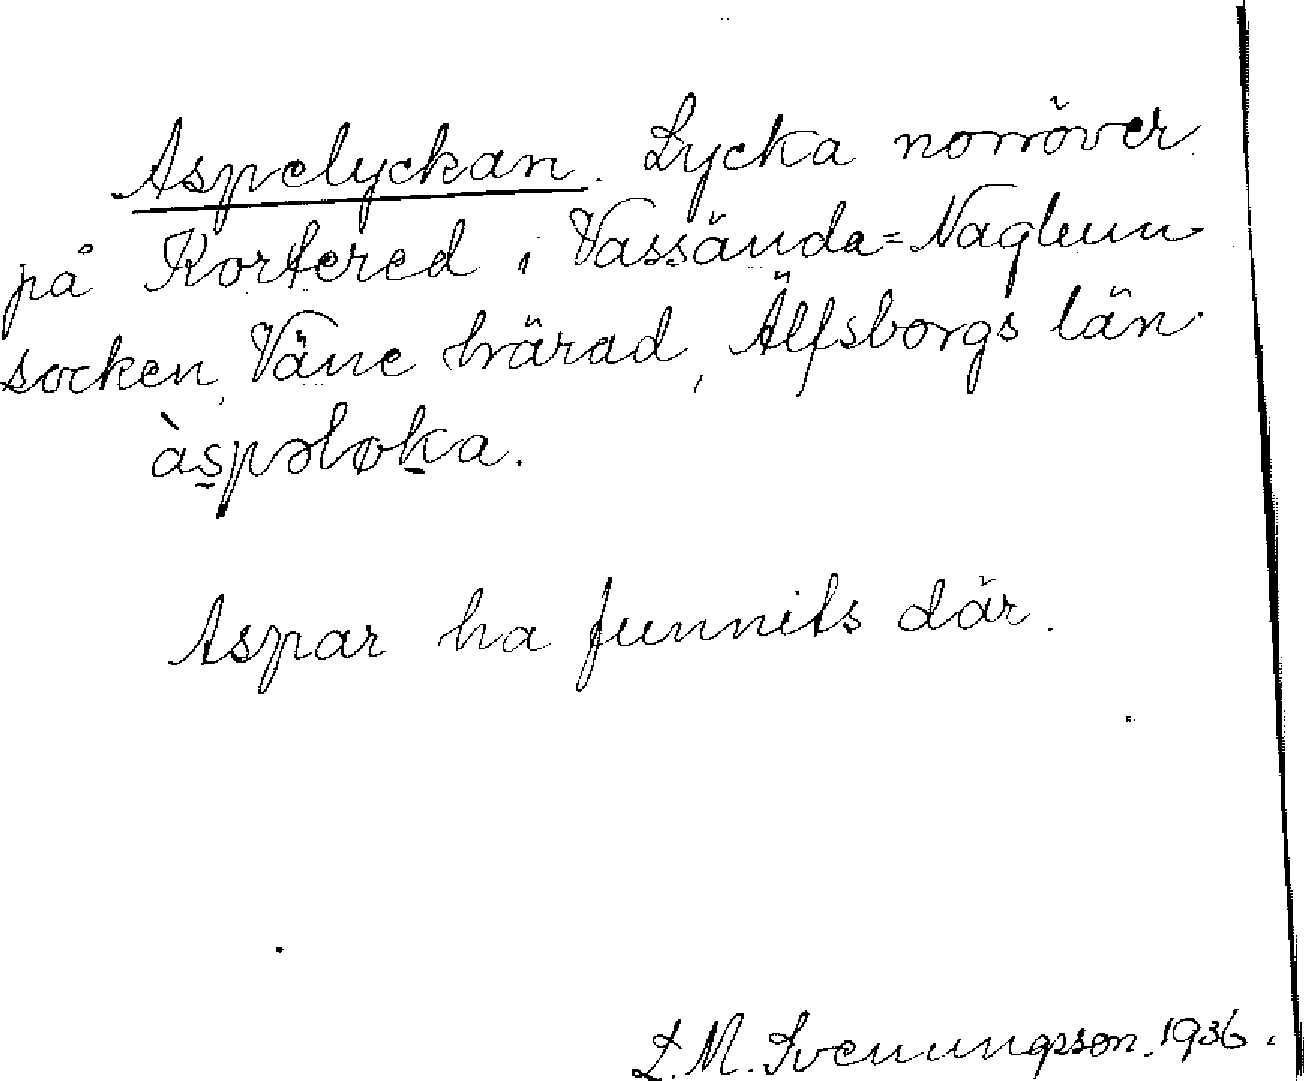 Aspelyckan. Lycka norröver
på Kortered i Vassända=Naglum
socken, Väne härad, Älfsborgs län.
àspəloka.
Aspar ha funnits där.
L. M. Svenungsson. 1936.